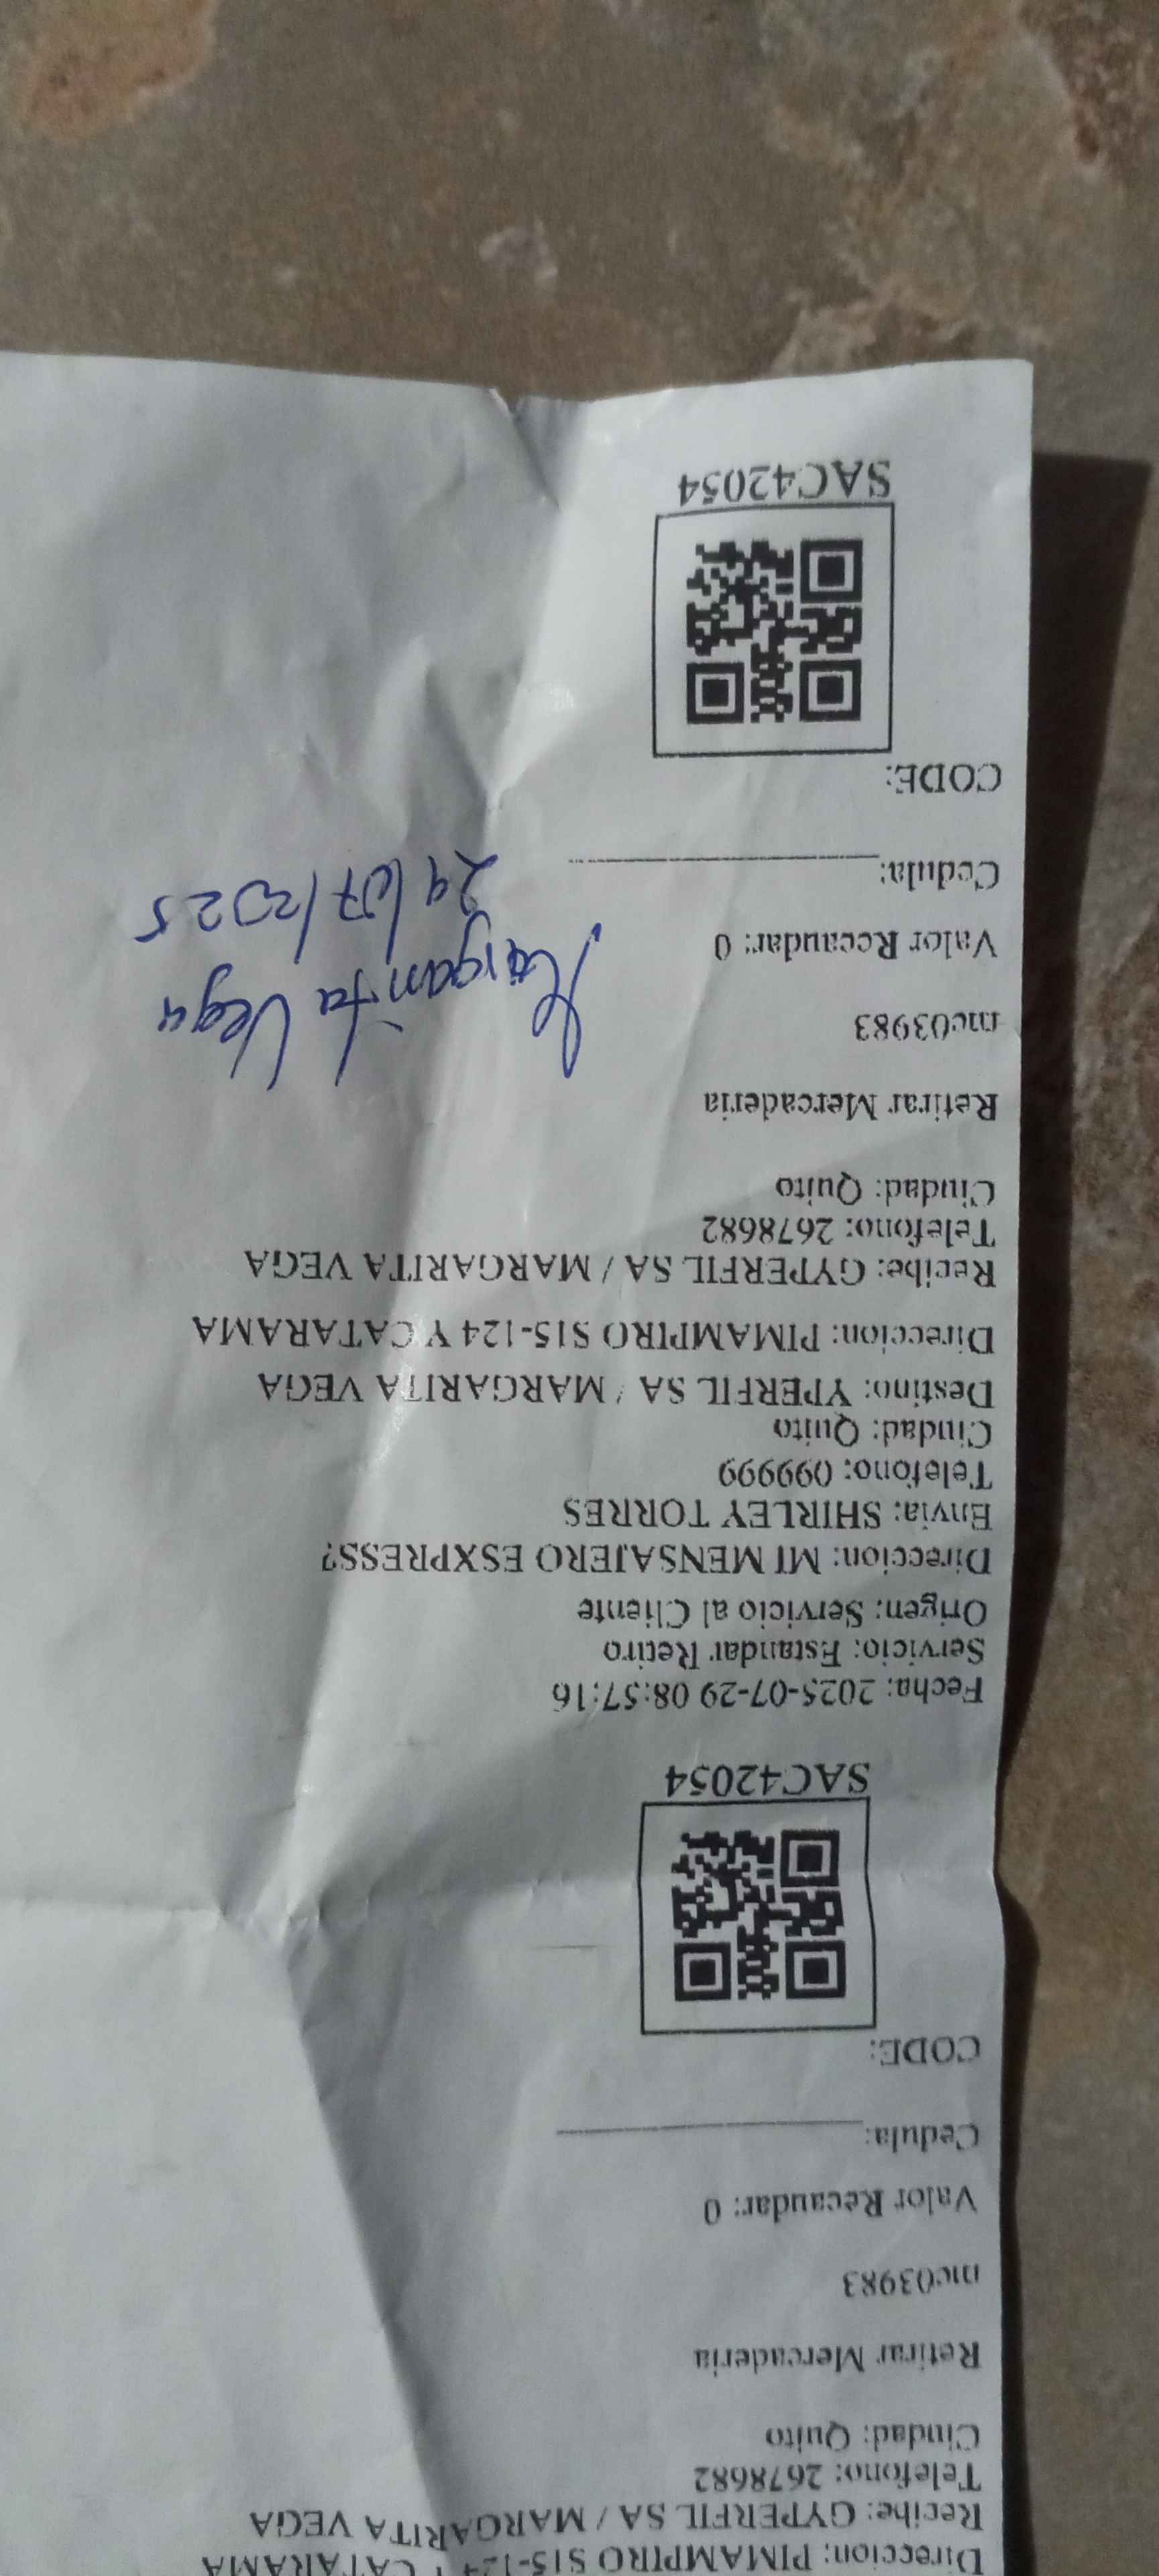 Direccion: PIMAMPIRO S15-124 Y CATARAMA
Recibe: GYPERFIL SA / MARGARITA VEGA
Telefono: 2678682
Ciudad: Quito
Retirar Mercaderia
mc03983
Valor Recaudar: 0
Cedula:
CODE:
SAC42054
Fecha: 2025-07-29 08:57:16
Servicio: Estandar Retiro
Origen: Servicio al Cliente
Direccion: MI MENSAJERO ESXPRESS?
Envia: SHIRLEY TORRES
Telefono: 099999
Ciudad: Quito
Destino: YPERFIL SA / MARGARITA VEGA
Direccion: PIMAMPIRO S15-124 Y CATARAMA
Recibe: GYPERFIL SA / MARGARITA VEGA
Telefono: 2678682
Ciudad: Quito
Retirar Mercaderia
mc03983
Margarita Vega
Valor Recaudar: 0
29/07/2025
Cedula:
CODE:
SAC42054